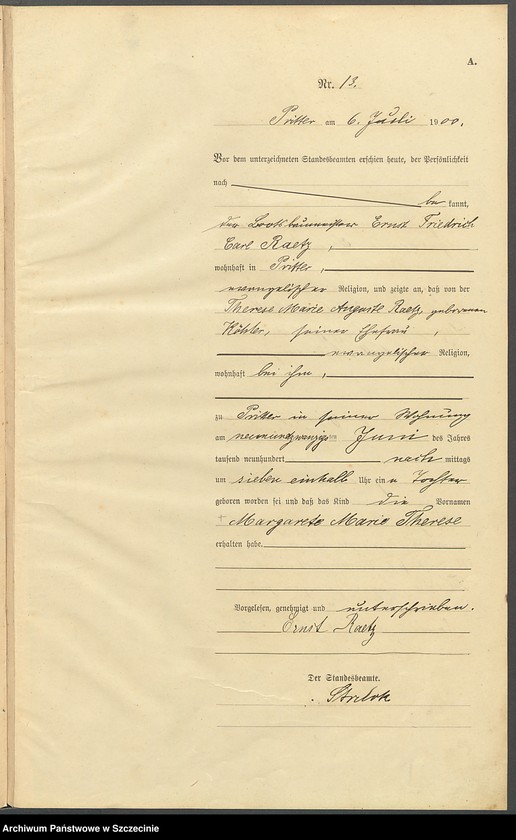 A.
Nr. 13.
Pritter am 6. Juli 1900.
Vor dem unterzeichneten Standesbeamten erschien heute, der Persönlichkeit
nach
bekannt,
der Ernst Friedrich
Carl Raetz,
wohnhaft in Pritter,
evangelischer Religion, und zeigte an, daß von der
Therese Marie Auguste Raetz, geborenen
Köhler, seiner Ehefrau,
evangelischer Religion,
wohnhaft bei ihm,
zu Pritter in seiner Wohnung
am neunundzwanzigsten Juni des Jahres
tausend neunhundert nachmittags
um sieben einhalb Uhr eine Tochter
geboren worden sei und daß das Kind die Vornamen
Margarete Marie Therese
erhalten habe.
Vorgelesen, genehmigt und unterschrieben.
Ernst Raetz
Der Standesbeamte.
Strelow
Archiwum Państwowe w Szczecinie